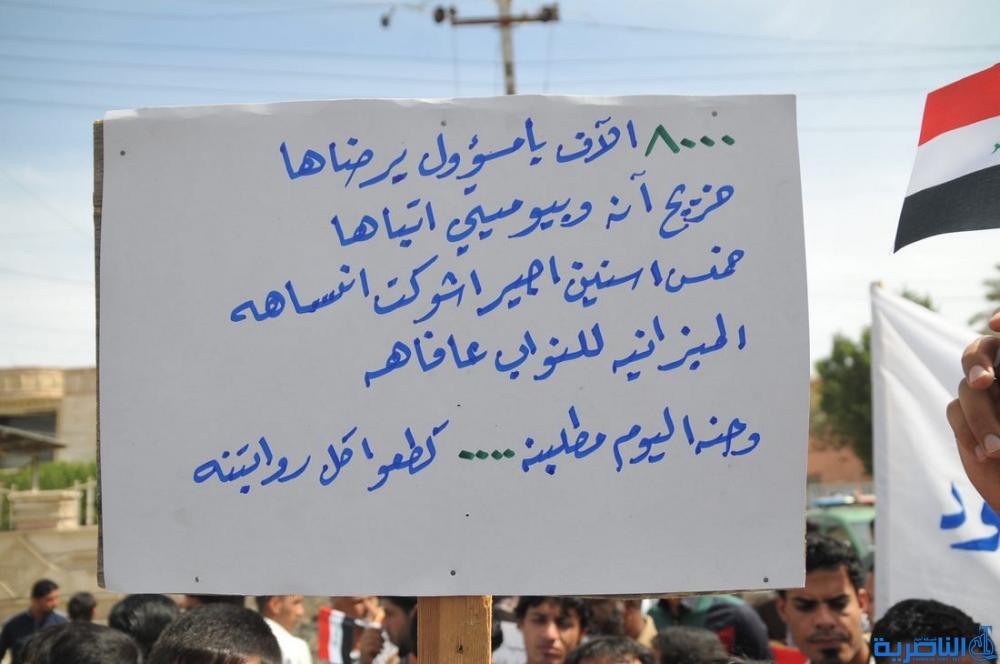 ٨٠٠٠ الآف يا مسؤول يرضاها
خريج آنه وبيوميتي اتباها
خمس اسنين اجير اشوكت انساهه
الميزانيه للنواب عافاهه
وحنه اليوم مطلبنه .... كطعوا كل رواتبنه
ود
الناصرية